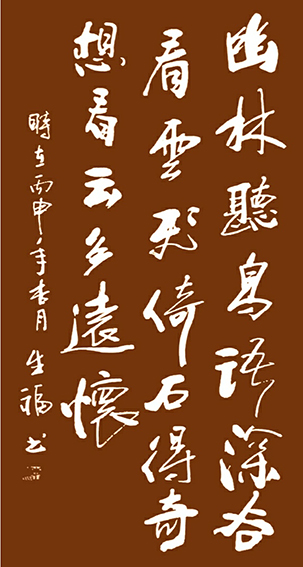 幽林聽鳥語深谷
看雲形倚石得奇
想看云多遠懷
時在丙申年季月生福书